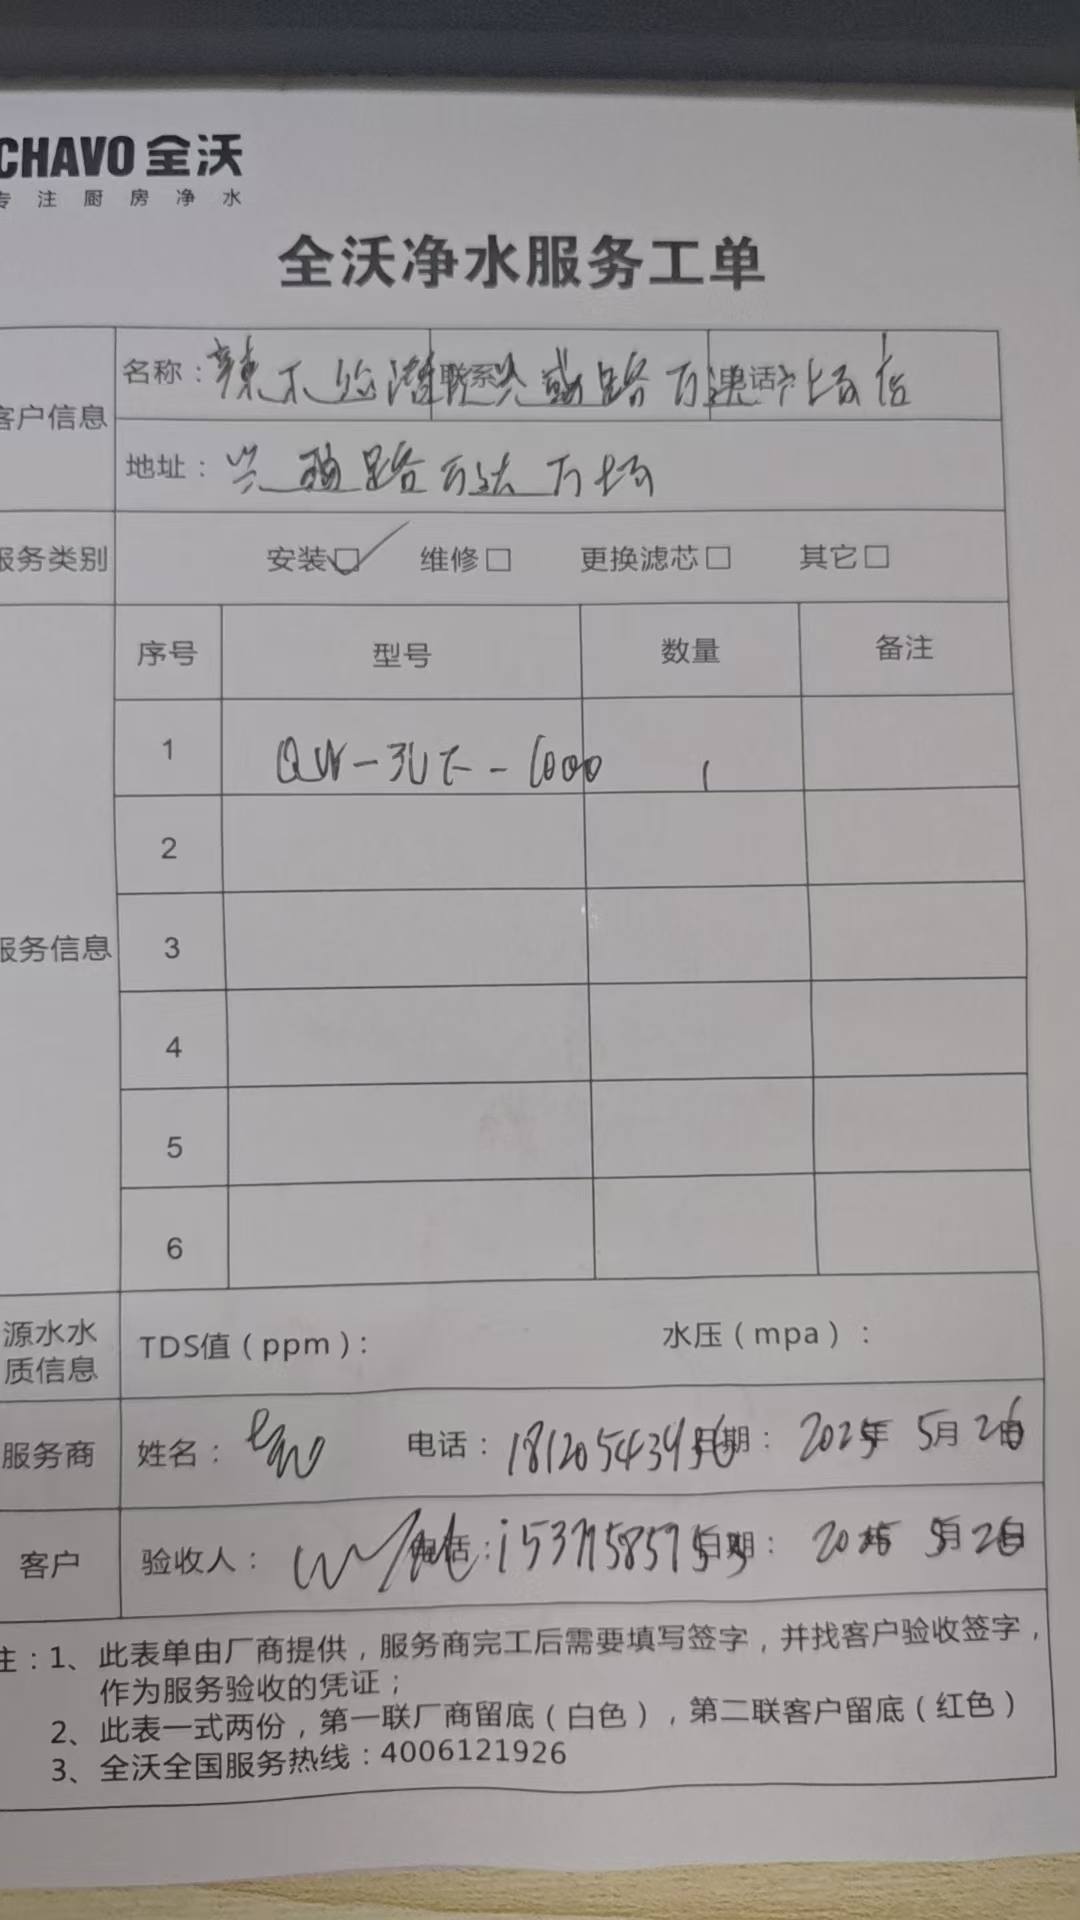 CHAVO 全沃
专注厨房净水
全沃净水服务工单
客户信息
名称： 联系 兴盛路万达 电话 广场店
地址：兴盛路万达广场
服务类别 安装☑ 维修□ 更换滤芯□ 其它□
序号 型号 数量 备注
1 QW-3L下-1000 1
2
服务信息 3
4
5
6
源水水质信息 TDS值（ppm）： 水压（mpa）：
服务商 姓名： 电话： 日期：2025年5月26日
客户 验收人： 电话： 日期：2025年5月26日
注：1、此表单由厂商提供，服务商完工后需要填写签字，并找客户验收签字，
作为服务验收的凭证；
2、此表一式两份，第一联厂商留底（白色），第二联客户留底（红色）
3、全沃全国服务热线：4006121926